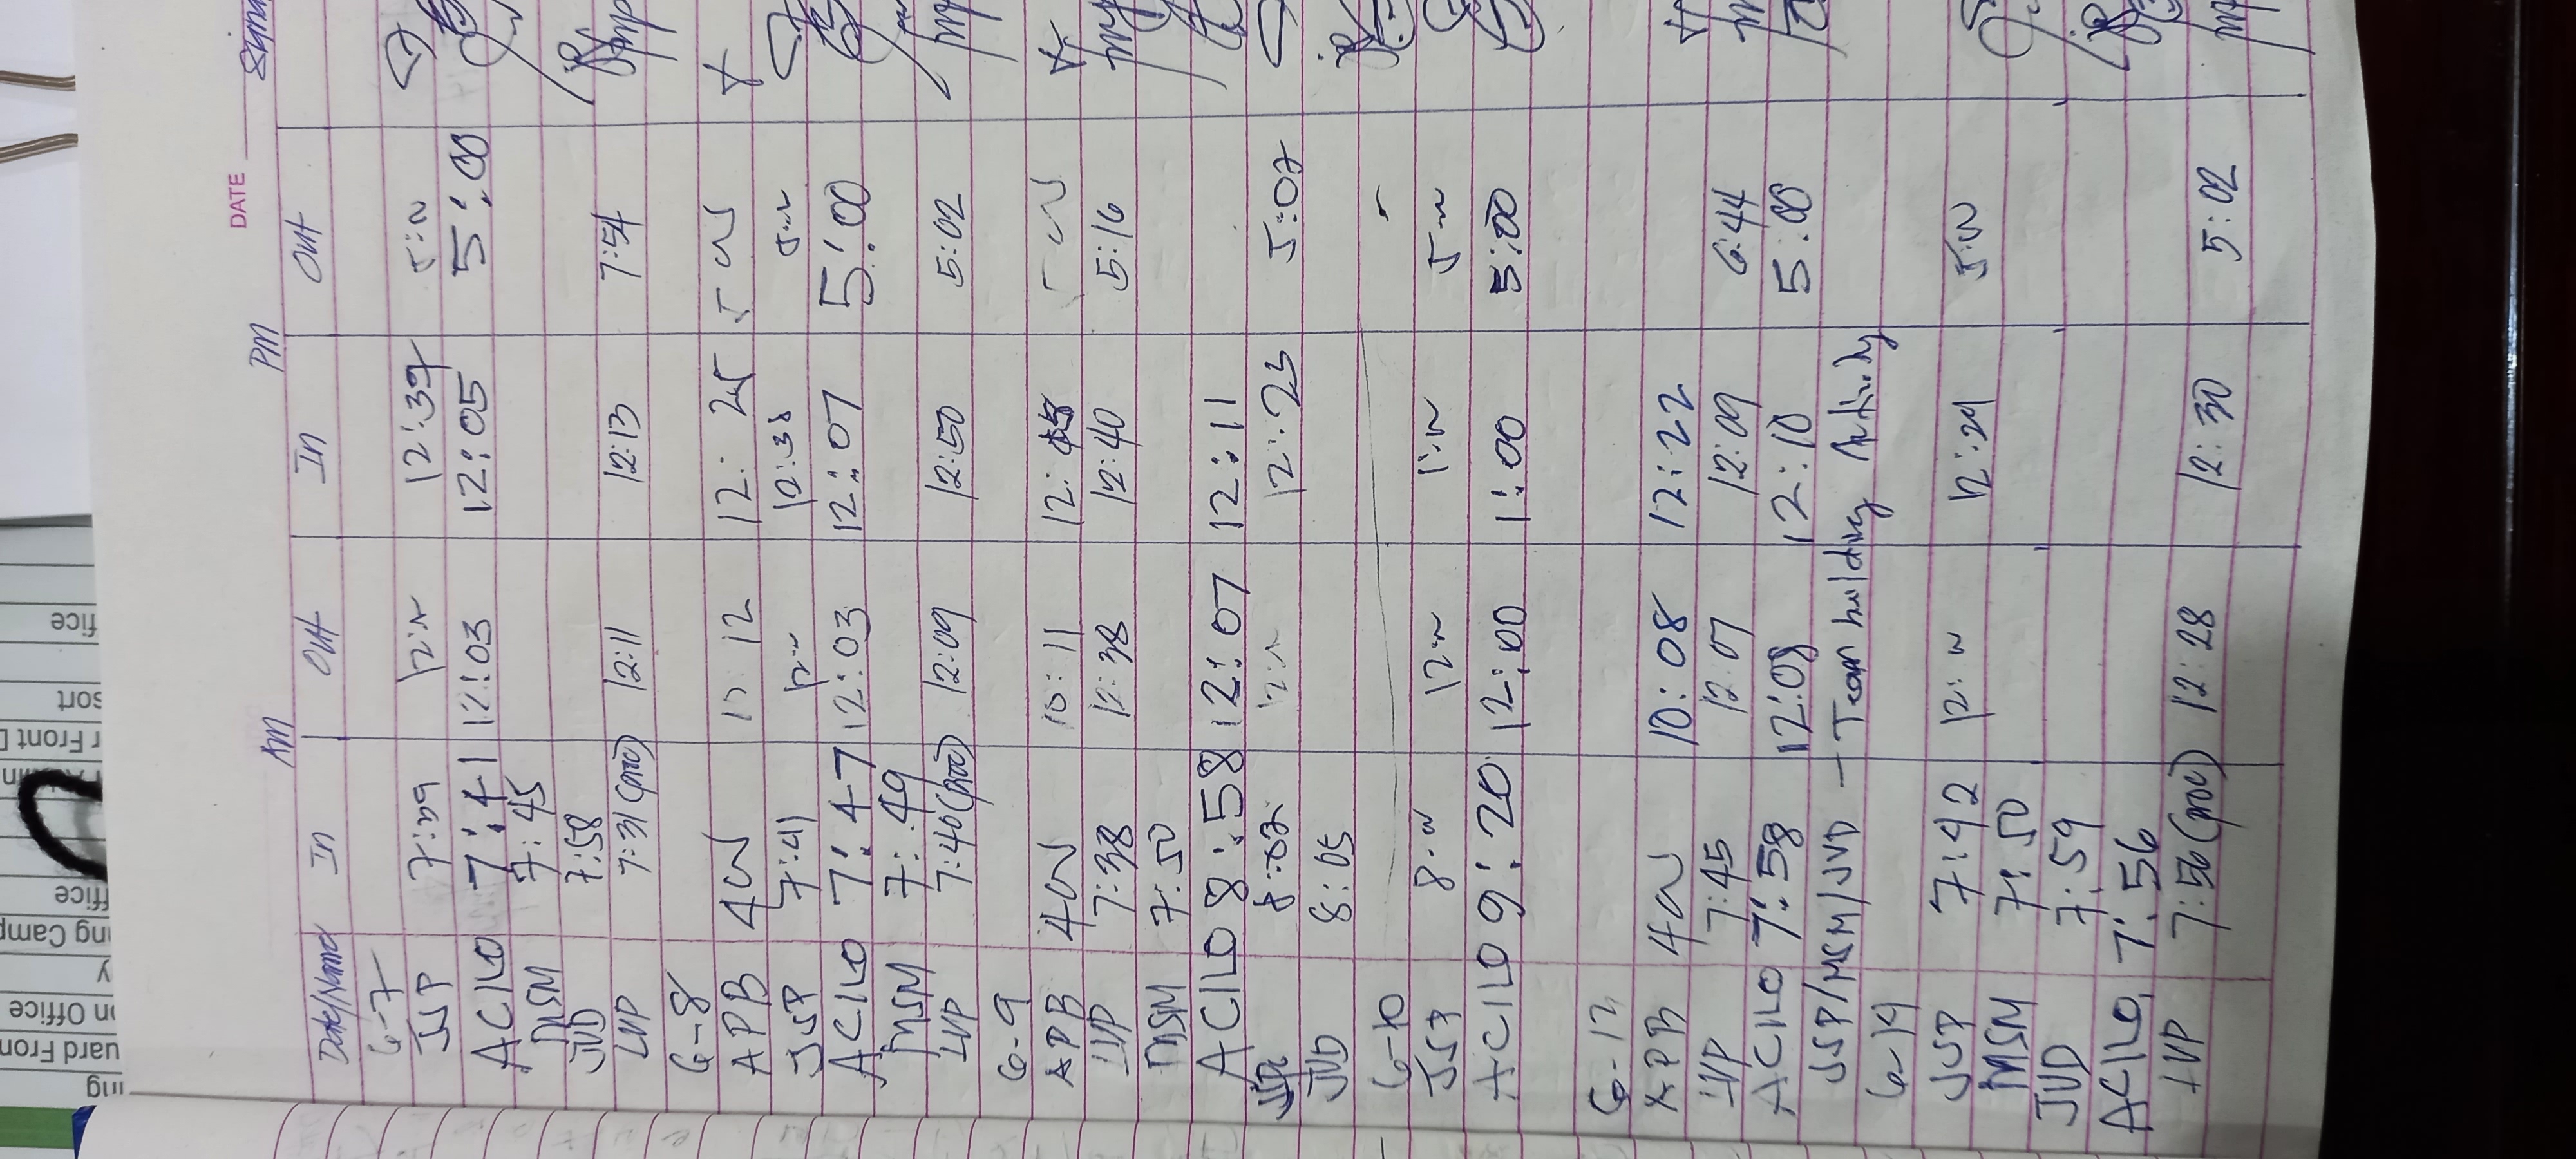 DATE
AM PM
Date/Name In Out In Out
6-7
JSP 7:39 12:N 12:39 5:N
ACILO 7:41 12:03 12:05 5:00
MSM 7:45
JVD 7:58
LVP 7:31 (prov) 12:11 12:13 7:54
6-8
APB 4W 10:12 12:25 5W
JSP 7:41 12:N 12:38 5:N
ACILO 7:47 12:03 12:07 5:00
MSM 7:49
LVP 7:40 (prov) 12:09 12:50 5:02
6-9
APB 4W 10:11 12:45 5W
LVP 7:38 12:38 12:40 5:16
MSM 7:50
ACILO 8:58 12:07 12:11
8:02 12:N 12:23 5:02
JVD 8:05
6-10
JSP 8:N 12:N 1:N 5:N
ACILO 9:20 12:00 1:00 5:00
6-12
APB 4W 10:08 12:22
LVP 7:45 12:07 12:09 6:44
ACILO 7:58 12:08 12:10 5:00
JSP/MSM/JVD - Team building Activity
6-14
JSP 7:42 12:N 12:29 5:N
MSM 7:50
JVD 7:59
ACILO 7:56
LVP 7:56 (prov) 12:28 12:30 5:02